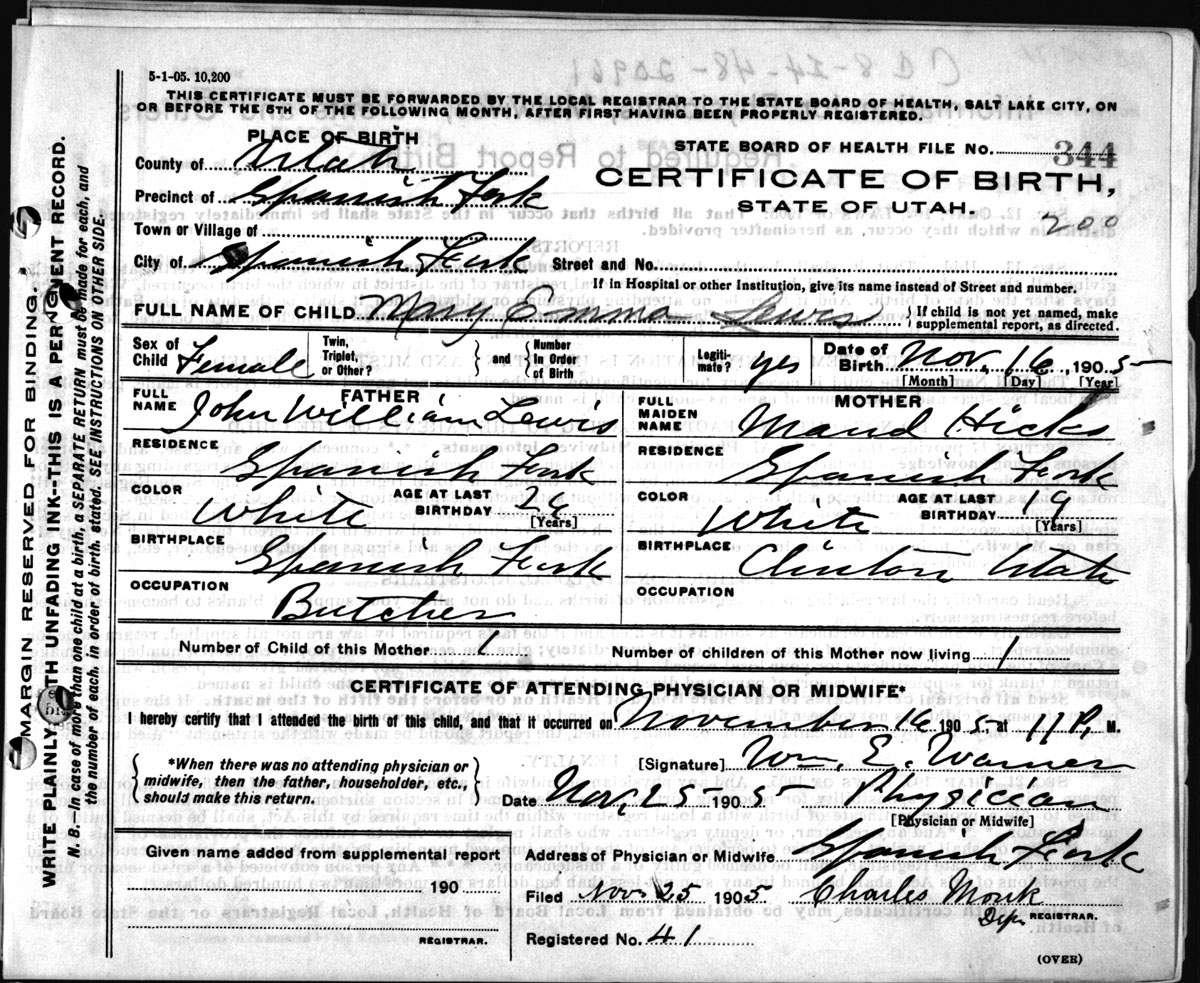 5-1-05. 10,200
THIS CERTIFICATE MUST BE FORWARDED BY THE LOCAL REGISTRAR TO THE STATE BOARD OF HEALTH, SALT LAKE CITY, ON
OR BEFORE THE 5TH OF THE FOLLOWING MONTH, AFTER FIRST HAVING BEEN PROPERLY REGISTERED.
PLACE OF BIRTH
STATE BOARD OF HEALTH FILE No. 344
County of Utah
CERTIFICATE OF BIRTH,
Precinct of Spanish Fork
STATE OF UTAH.
200
Town or Village of
City of Spanish Fork Street and No.
If in Hospital or other Institution, give its name instead of Street and number.
FULL NAME OF CHILD Mary Emma Lewis { If child is not yet named, make
supplemental report, as directed.
Sex of Child Female Twin, Triplet, or Other? } and { Number In Order of Birth Legiti-mate? yes Date of Birth Nov. 16, 1905
[Month] [Day] [Year]
FATHER
FULL NAME John William Lewis
RESIDENCE
Spanish Fork
COLOR White AGE AT LAST BIRTHDAY
[Years]
BIRTHPLACE
Spanish Fork
OCCUPATION
Butcher
MOTHER
FULL MAIDEN NAME Maud Hicks
RESIDENCE
Spanish Fork
COLOR White AGE AT LAST BIRTHDAY 19
[Years]
BIRTHPLACE
Clinton Utah
OCCUPATION
Number of Child of this Mother 1 Number of children of this Mother now living 1
CERTIFICATE OF ATTENDING PHYSICIAN OR MIDWIFE*
I hereby certify that I attended the birth of this child, and that it occurred on November 16 1905, at 11 P. M.
{ *When there was no attending physician or
midwife, then the father, householder, etc.,
should make this return. }
[Signature] Wm. E. Warner
Date Nov, 25 1905 Physician
[Physician or Midwife]
Given name added from supplemental report
190
REGISTRAR.
Address of Physician or Midwife Spanish Fork
Filed Nov. 25 1905 Charles Monk
Dep REGISTRAR.
Registered No. 41
(OVER)
MARGIN RESERVED FOR BINDING.
WRITE PLAINLY WITH UNFADING INK--THIS IS A PERMANENT RECORD.
N. B.--In case of more than one child at a birth, a SEPARATE RETURN must be made for each, and
the number of each, in order of birth, stated. SEE INSTRUCTIONS ON OTHER SIDE.